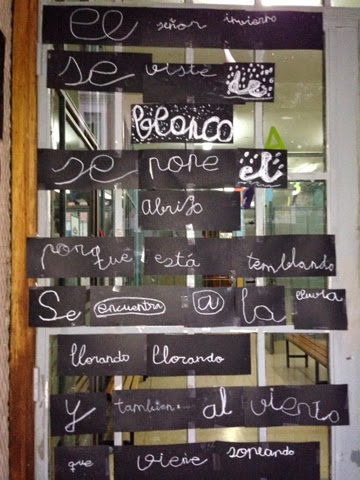 el señor invierno
se viste de
blanco
se pone el
abrigo
porque está temblando
Se encuentra a la lluvia
llorando llorando
y tambien al viento
que viene soplando